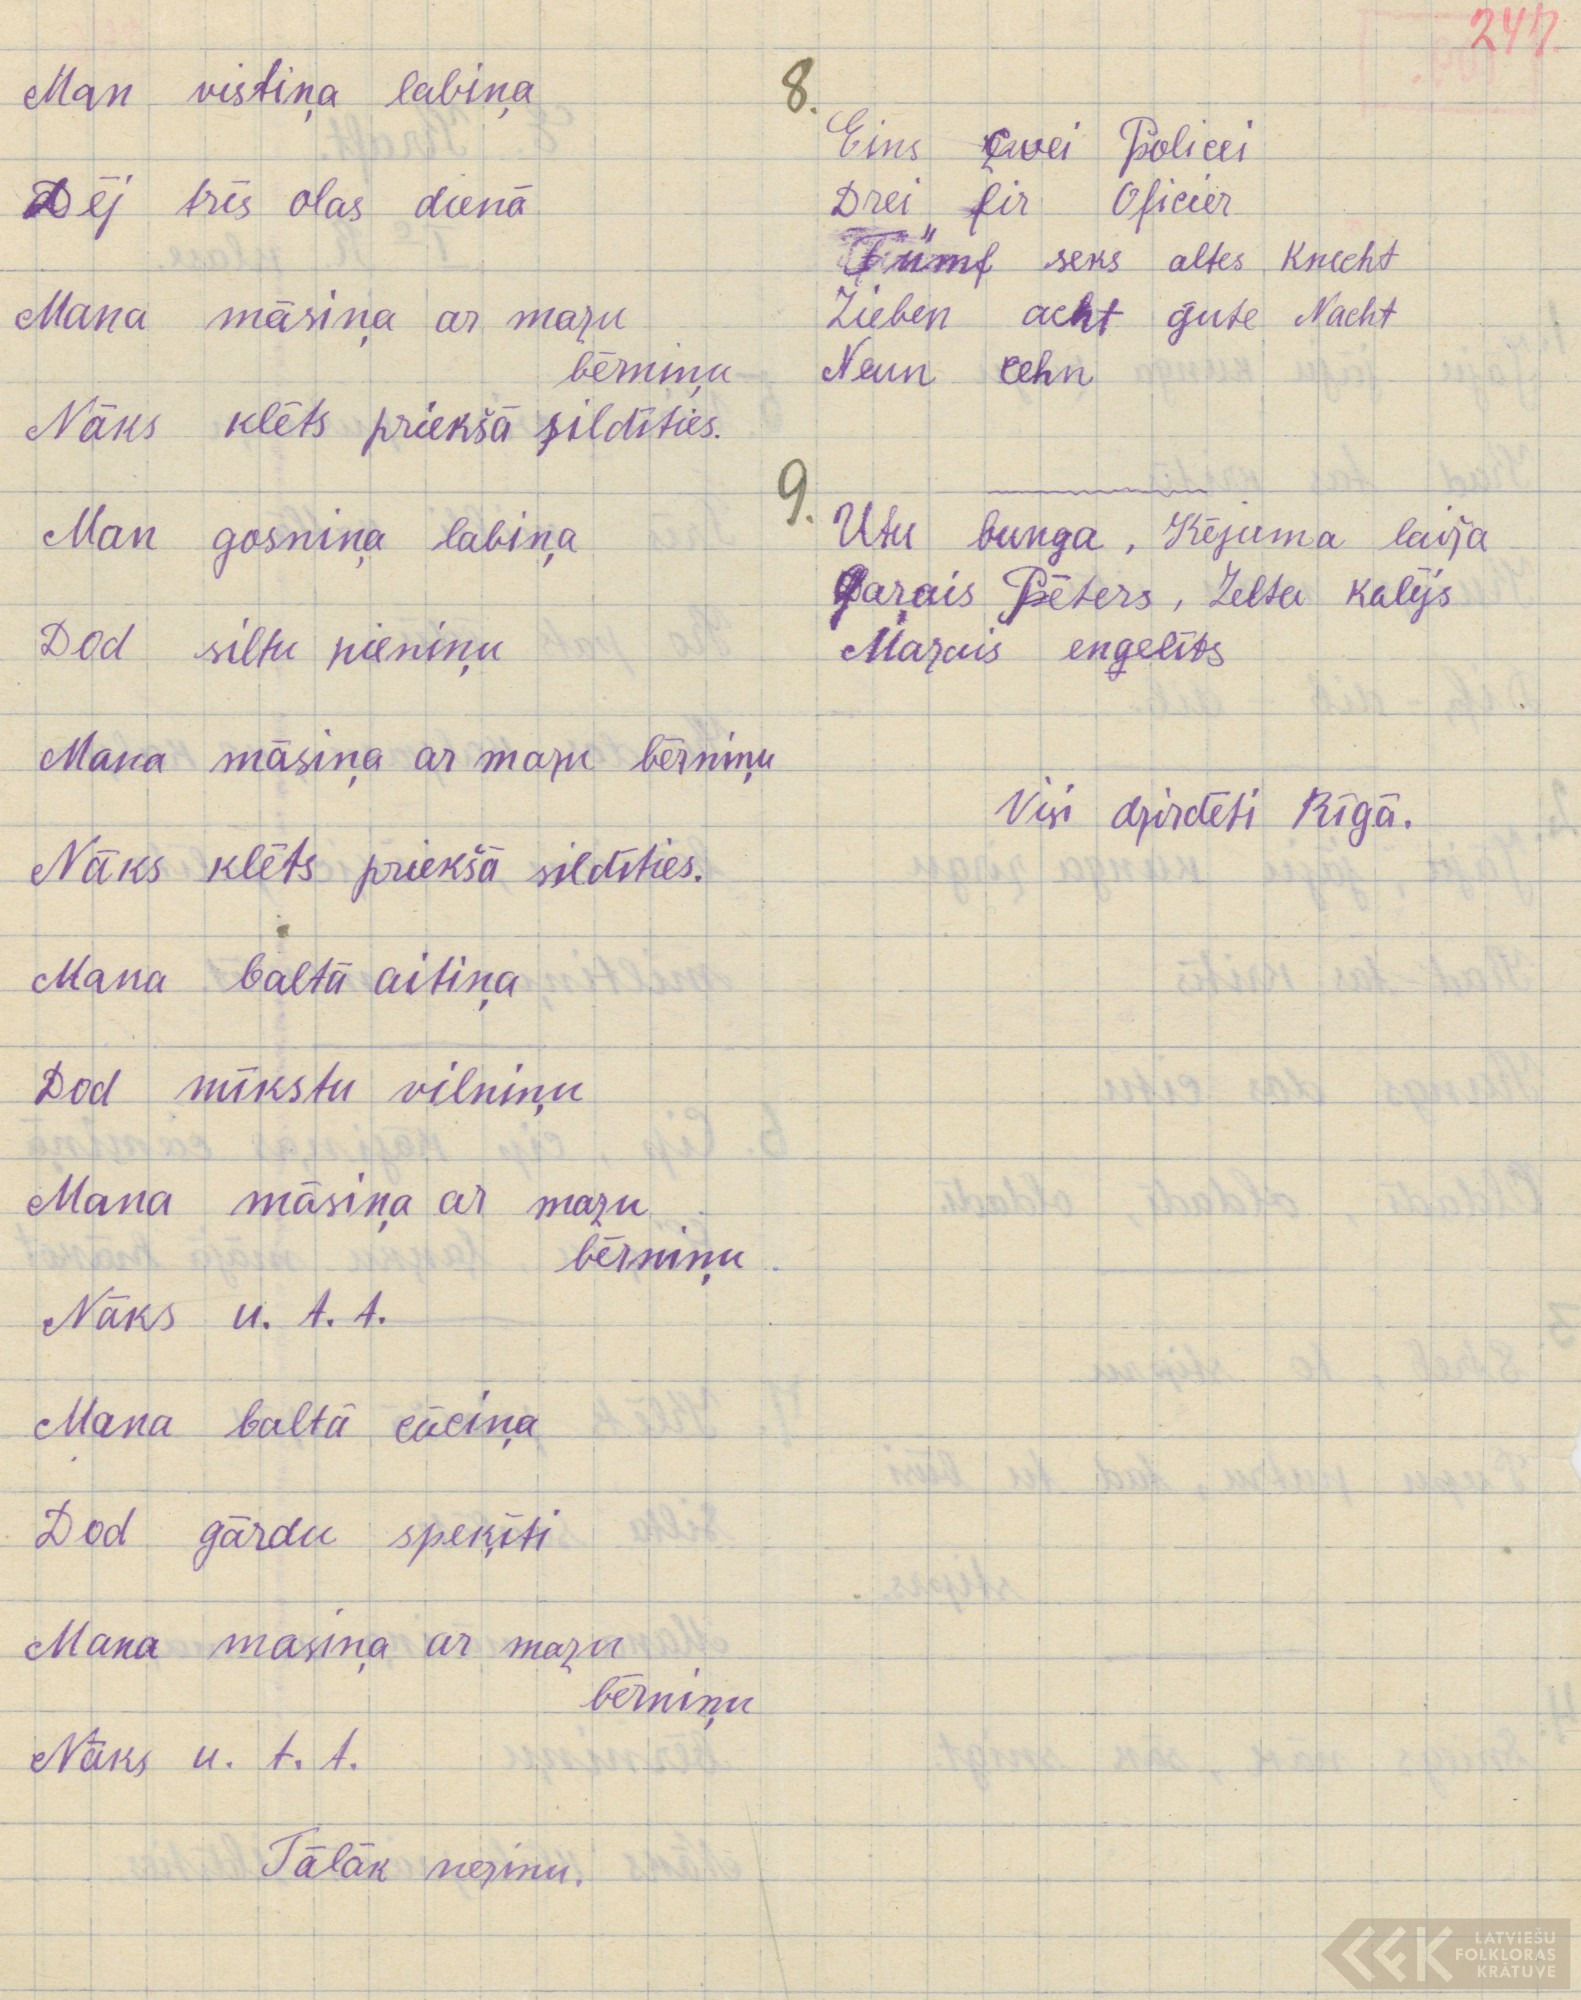 247.
Man vistiņa labiņa
Dēj trīs olas dienā
Mana māsiņa ar mazu
bērniņu
Nāks klēts priekšā sildīties.
Man gosniņa labiņa
Dod siltu pieniņu
Mana māsiņa ar mazu bērniņu
Nāks klēts priekšā sildīties.
Mana baltā aitiņa
Dod mīkstu vilniņu
Mana māsiņa ar mazu
bērniņu
Nāks u. t. t.
Mana baltā cūciņa
Dod gārdu speķīti
Mana masiņa ar mazu
bērniņu
Nāks u. t. t.
Tālāk nezinu.
8.
Eins cwei Policei
Drei fir Oficier
Fümf seks altes Knecht
Zieben acht gute Nacht
Neun cehn
9.
Utu bunga, Ķējuma laiža
Garais Pēters, Zelta Kalējs
Mazais engelīts
Visi dzirdēti Rīgā.
LATVIEŠU
FOLKLORAS
KRĀTUVE